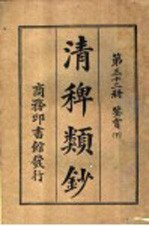 第三十二冊 鑒賞(下)
清稗類鈔
商務印書館發行